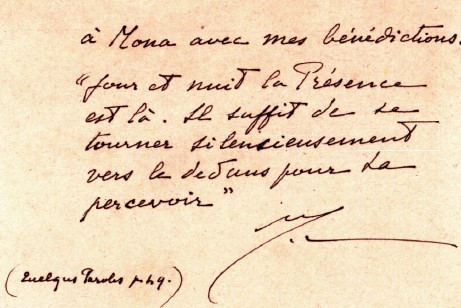 à Mona avec mes bénédictions.
"Jour et nuit la Présence
est là. Il suffit de se
tourner silensieusement
vers le dedans pour la
percevoir"
(Quelques Paroles p.49.)